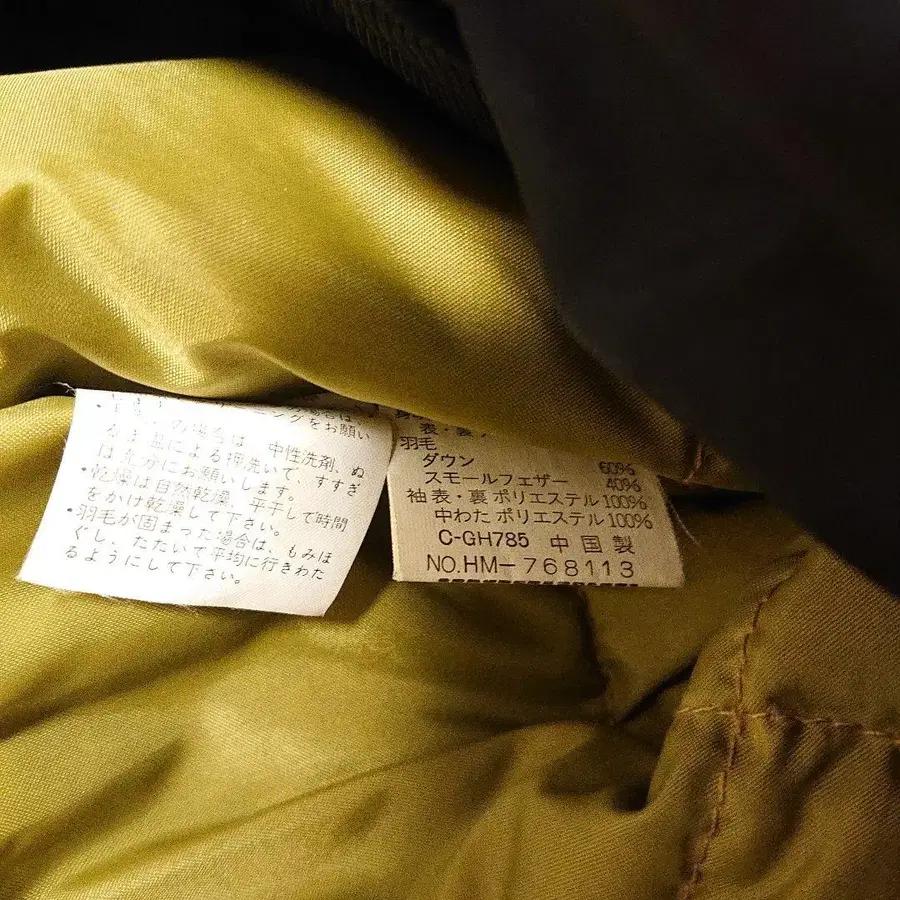 ーニングをお願い
の場合は、中性洗剤、ぬ
による押洗いで、すすぎ
は充分にお願いします。
・乾燥は自然乾燥、平干しで時間
をかけ乾燥して下さい。
・羽毛が固まった場合は、もみほ
ぐし、たたいて平均に行きわた
るようにして下さい。
表・裏
羽毛
ダウン 60%
スモールフェザー 40%
袖表・裏 ポリエステル 100%
中わた ポリエステル 100%
C-GH785 中国製
NO.HM-768113